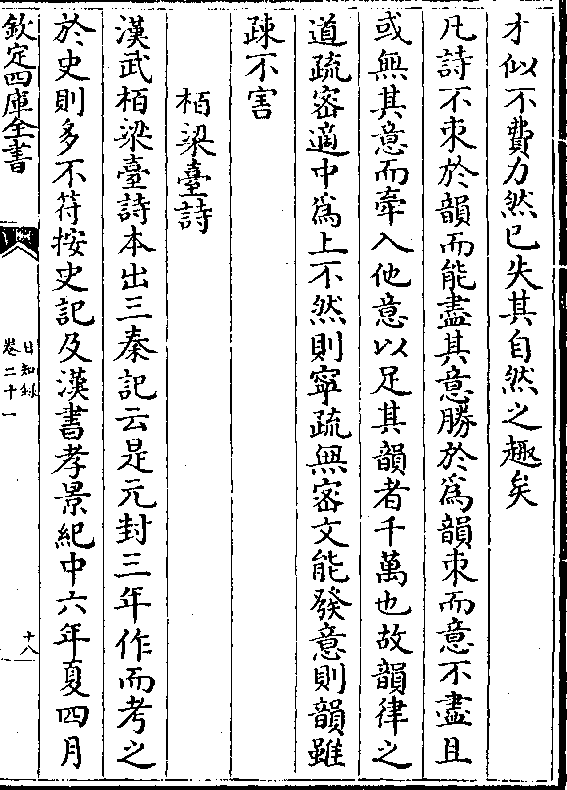 才似不費力然已失其自然之趣矣
凡詩不束於韻而能盡其意勝於為韻束而意不盡且
或無其意而牽入他意以足其韻者千萬也故韻律之
道疏密適中為上不然則寧疏無密文能發意則韻雖
疎不害
栢梁臺詩
漢武栢梁臺詩本出三秦記云是元封三年作而考之
於史則多不符按史記及漢書孝景紀中六年夏四月
欽定四庫全書
日知録
卷二十一
十八